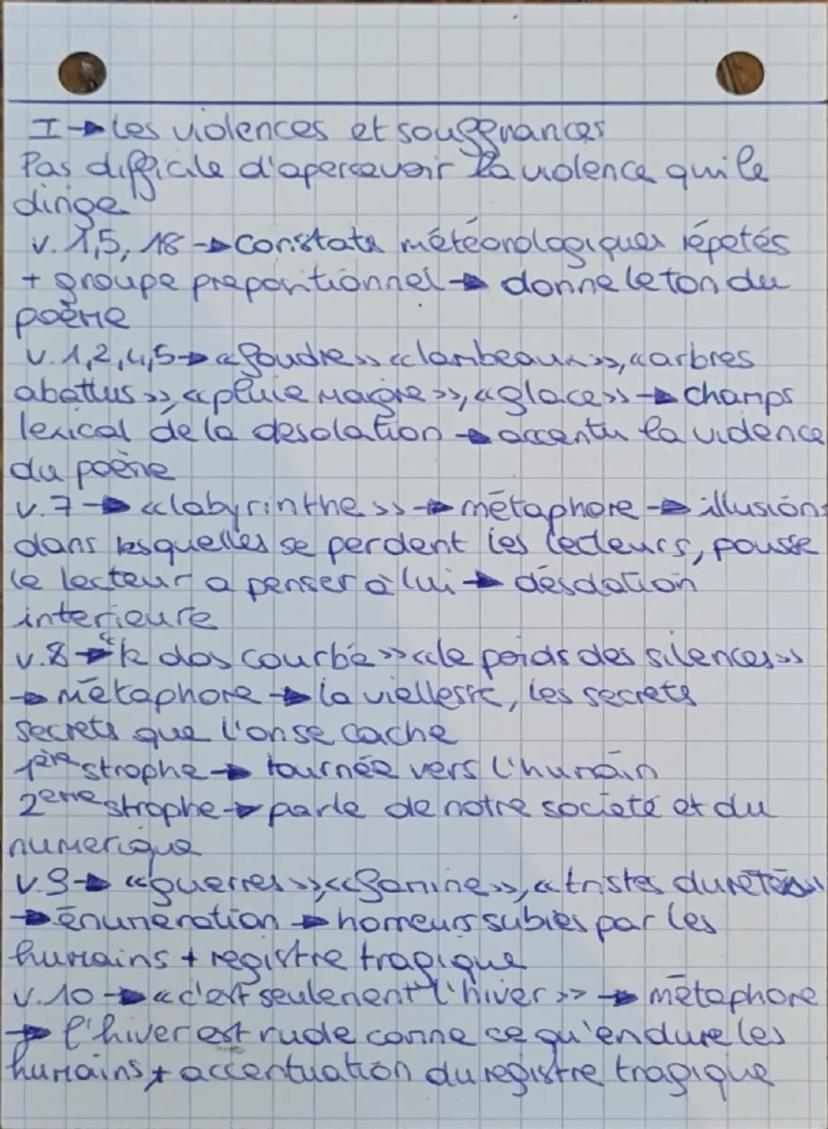 I → Les violences et souffrances
Pas difficile d'apercevoir la violence qui le
dirige
v. 1,5, 18 → constats météorologiques répetés
+ groupe prepositionnel → donne le ton du
poème
v. 1,2,4,5 → «foudre» «lambeaux», «arbres
abattus», «pluie maigre», «glace» → champs
lexical de la desolation → accentu la violence
du poème
v.7 → «labyrinthe» → métaphore → illusions
dans lesquelles se perdent les lecteurs, pousse
le lecteur a penser à lui → désolation
interieure
v.8 → "le dos courbé» «le poids des silences»
→ métaphore → la viellesse, les secrets
secrets que l'on se cache
1ère strophe → tournée vers l'humain
2eme strophe → parle de notre societé et du
numerique
v.9 → «guerres», «famine», «tristes duretés»
→ énumeration → horreurs subies par les
humains + registre tragique
v.10 → «c'est seulement l'hiver» → métaphore
→ l'hiver est rude comme ce qu'endure les
humains + accentuation du registre tragique